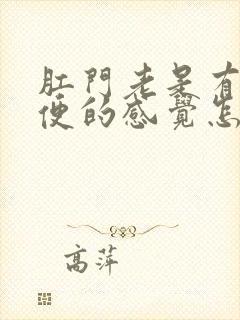 肛門老是有
便的感覺怎
高萍